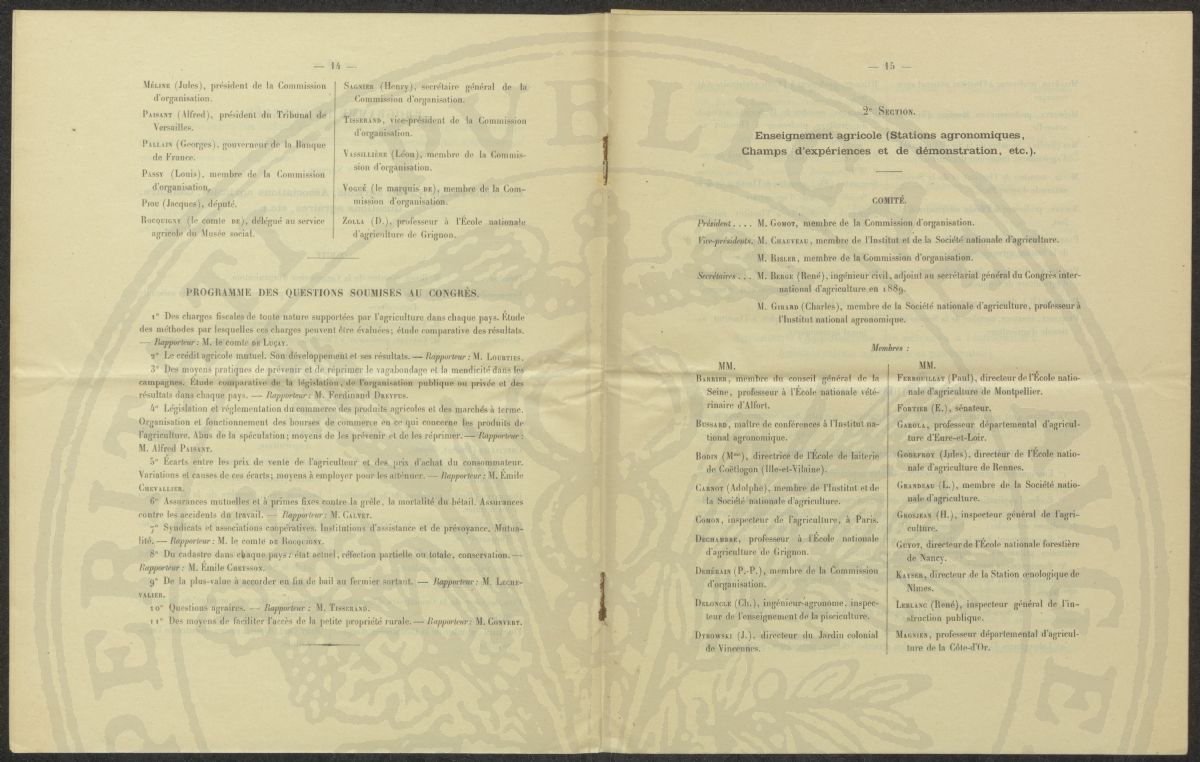 — 14 —
Méline (Jules), président de la Commission
d'organisation.
Paisant (Alfred), président du Tribunal de
Versailles.
Pallain (Georges), gouverneur de la Banque
de France.
Passy (Louis), membre de la Commission
d'organisation.
Piou (Jacques), député.
Rocquigny (le comte de), délégué au service
agricole du Musée social.
Sagnier (Henry), secrétaire général de la
Commission d'organisation.
Tisserand, vice-président de la Commission
d'organisation.
Vassillière (Léon), membre de la Commis-
sion d'organisation.
Vogüé (le marquis de), membre de la Com-
mission d'organisation.
Zolla (D.), professeur à l'École nationale
d'agriculture de Grignon.
PROGRAMME DES QUESTIONS SOUMISES AU CONGRÈS.
1° Des charges fiscales de toute nature supportées par l'agriculture dans chaque pays. Étude
des méthodes par lesquelles ces charges peuvent être évaluées; étude comparative des résultats.
— Rapporteur : M. le comte de Luçay.
2° Le crédit agricole mutuel. Son développement et ses résultats. — Rapporteur : M. Lourties.
3° Des moyens pratiques de prévenir et de réprimer le vagabondage et la mendicité dans les
campagnes. Étude comparative de la législation, de l'organisation publique ou privée et des
résultats dans chaque pays. — Rapporteur : M. Ferdinand Dreyfus.
4° Législation et réglementation du commerce des produits agricoles et des marchés à terme.
Organisation et fonctionnement des bourses de commerce en ce qui concerne les produits de
l'agriculture. Abus de la spéculation; moyens de les prévenir et de les réprimer. — Rapporteur :
M. Alfred Paisant.
5° Écarts entre les prix de vente de l'agriculteur et des prix d'achat du consommateur.
Variations et causes de ces écarts; moyens à employer pour les atténuer. — Rapporteur : M. Émile
Chevallier.
6° Assurances mutuelles et à primes fixes contre la grêle, la mortalité du bétail. Assurances
contre les accidents du travail. — Rapporteur : M. Calvet.
7° Syndicats et associations coopératives. Institutions d'assistance et de prévoyance. Mutua-
lité. — Rapporteur : M. le comte de Rocquigny.
8° Du cadastre dans chaque pays : état actuel, réfection partielle ou totale, conservation. —
Rapporteur : M. Émile Cheysson.
9° De la plus-value à accorder en fin de bail au fermier sortant. — Rapporteur : M. Leche-
valier.
10° Questions agraires. — Rapporteur : M. Tisserand.
11° Des moyens de faciliter l'accès de la petite propriété rurale. — Rapporteur : M. Convert.
— 15 —
2e Section.
Enseignement agricole (Stations agronomiques,
Champs d'expériences et de démonstration, etc.).
COMITÉ.
Président .... M. Gomot, membre de la Commission d'organisation.
Vice-présidents. M. Chauveau, membre de l'Institut et de la Société nationale d'agriculture.
M. Risler, membre de la Commission d'organisation.
Secrétaires ... M. Berge (René), ingénieur civil, adjoint au secrétariat général du Congrès inter-
national d'agriculture en 1889.
M. Girard (Charles), membre de la Société nationale d'agriculture, professeur à
l'Institut national agronomique.
Membres :
MM.
Barrier, membre du conseil général de la
Seine, professeur à l'École nationale vété-
rinaire d'Alfort.
Bussard, maître de conférences à l'Institut na-
tional agronomique.
Bodin (Mme), directrice de l'École de laiterie
de Coëtlogon (Ille-et-Vilaine).
Carnot (Adolphe), membre de l'Institut et de
la Société nationale d'agriculture.
Comon, inspecteur de l'agriculture, à Paris.
Dechambre, professeur à l'École nationale
d'agriculture de Grignon.
Dehérain (P.-P.), membre de la Commission
d'organisation.
Deloncle (Ch.), ingénieur-agronome, inspec-
teur de l'enseignement de la pisciculture.
Dybowski (J.), directeur du Jardin colonial
de Vincennes.
MM.
Ferrouillat (Paul), directeur de l'École natio-
nale d'agriculture de Montpellier.
Fortier (E.), sénateur.
Garola, professeur départemental d'agricul-
ture d'Eure-et-Loir.
Godefroy (Jules), directeur de l'École natio-
nale d'agriculture de Rennes.
Grandeau (L.), membre de la Société natio-
nale d'agriculture.
Grosjean (H.), inspecteur général de l'agri-
culture.
Guyot, directeur de l'École nationale forestière
de Nancy.
Kayser, directeur de la Station œnologique de
Nîmes.
Leblanc (René), inspecteur général de l'in-
struction publique.
Magnien, professeur départemental d'agricul-
ture de la Côte-d'Or.